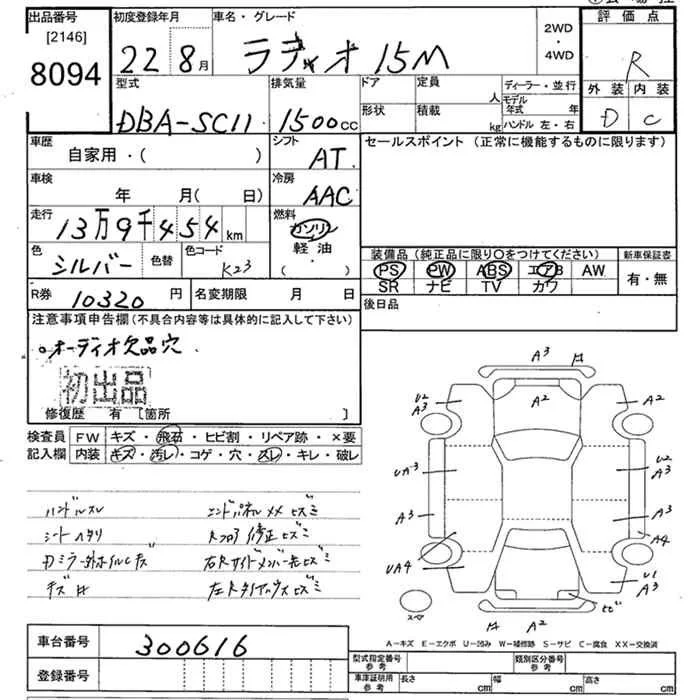 出品番号
[2146]
8094
初度登録年月
22 8月
車名・グレード
ラティオ 15M
2WD
・
4WD
評価点
R
外装 内装
D C
型式
DBA-SC11
排気量
1500cc
ドア
形状
定員
人
積載
kg
ディーラー・並行
モデル
年式 年
ハンドル 左・右
車歴
自家用・( )
シフト
AT
セールスポイント (正常に機能するものに限ります)
車検
年 月( 日)
冷房
AAC
走行
13万9千454km
燃料
ガソリン
軽油
・
( )
色
シルバー
色替
色コード
K23
装備品(純正品に限り○をつけてください)
PS PW ABS エアB AW
SR ナビ TV カワ
新車保証書
有・無
R券
10320円
名変期限 月 日
後日品
注意事項申告欄(不具合内容等は具体的に記入して下さい)
○オーディオ欠品穴.
初出品
修復歴 有 〔箇所 〕
検査員
記入欄
FW キズ・飛石・ヒビ割・リペア跡・×要
内装 キズ・汚レ・コゲ・穴・スレ・キレ・破レ
ハンドルスレ
エンドパネルメメヒズミ
シートヘタリ
Rフロア修正ヒズミ
ドミラー・外ホイルCキズ
右Rサイドメンバー先ヒズミ
キズ
左RタイヤハウスヒズミI
A3
A2
U2
A3
A2
UA3
U2
A3
A3
A3
A4
UA4
U1
A3
スペア
A2
ヒビ
A-キズ E-エクボ U-凹み W-補修跡 S-サビ C-腐食 XX-交換済
車台番号
300616
登録番号
型式指定番号
参考
類別区分番号
参考
車庫証明用
参考
長さ cm
幅 cm
高さ cm